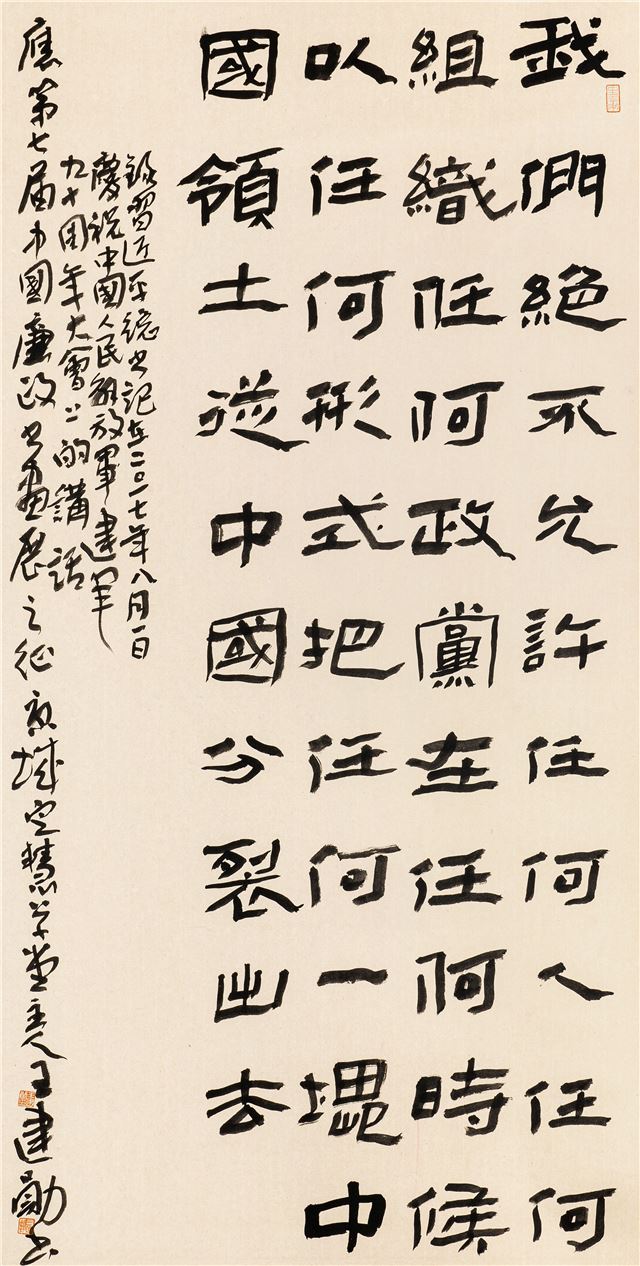 我們絕不允許任何人任何
組織任何政黨在任何時候
以任何形式把任何一塊中
國領土從中國分裂出去
錄習近平總書記在二〇一七年八月一日
慶祝中國人民解放軍建軍
九十周年大會上的講話
應第七届中國廉政書畫展之征 京城定慧草堂主人王建勛書